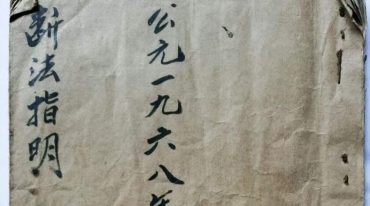 公元一九六八年
断法指明